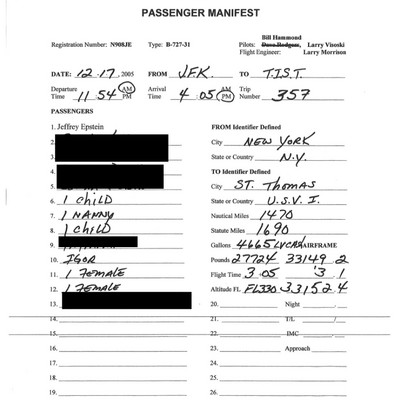 PASSENGER MANIFEST
Bill Hammond
Registration Number: N908JE Type: B-727-31 Pilots: Dave Rodgers, Larry Visoski
Flight Engineer: Larry Morrison
DATE: 12.17, 2005 FROM J.F.K. TO T.I.S.T.
Departure Time 11:54 AM PM Arrival Time 4:05 AM PM Trip Number 357
PASSENGERS
1. Jeffrey Epstein FROM Identifier Defined
2. City NEW YORK
3. State or Country N.Y.
4. TO Identifier Defined
5. City ST. Thomas
6. 1 CHILD State or Country U.S.V.I.
7. 1 NANNY Nautical Miles 1470
8. 1 CHILD Statute Miles 1690
9. Gallons 4665 AIRFRAME
10. IGOR Pounds 27724 33149.2
11. 1 FEMALE Flight Time 3.05 3.1
12. 1 FEMALE Altitude FL FL330 33152.4
13. 20. Night
14. 21. T/L /
15. 22. IMC
16. 23. Approach
17. 24.
18. 25.
19. 26.